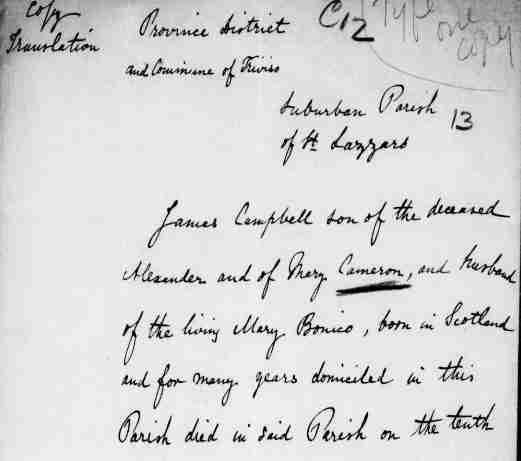 Copy
Translation
Province District
and Commune of Treviso
C12
Type
one
copy
Suburban Parish
13
of St. Lazzaro
James Campbell son of the deceased
Alexander and of Mary Cameron, and husband
of the living Mary Bonico, born in Scotland
and for many years domiciled in this
Parish died in said Parish on the tenth